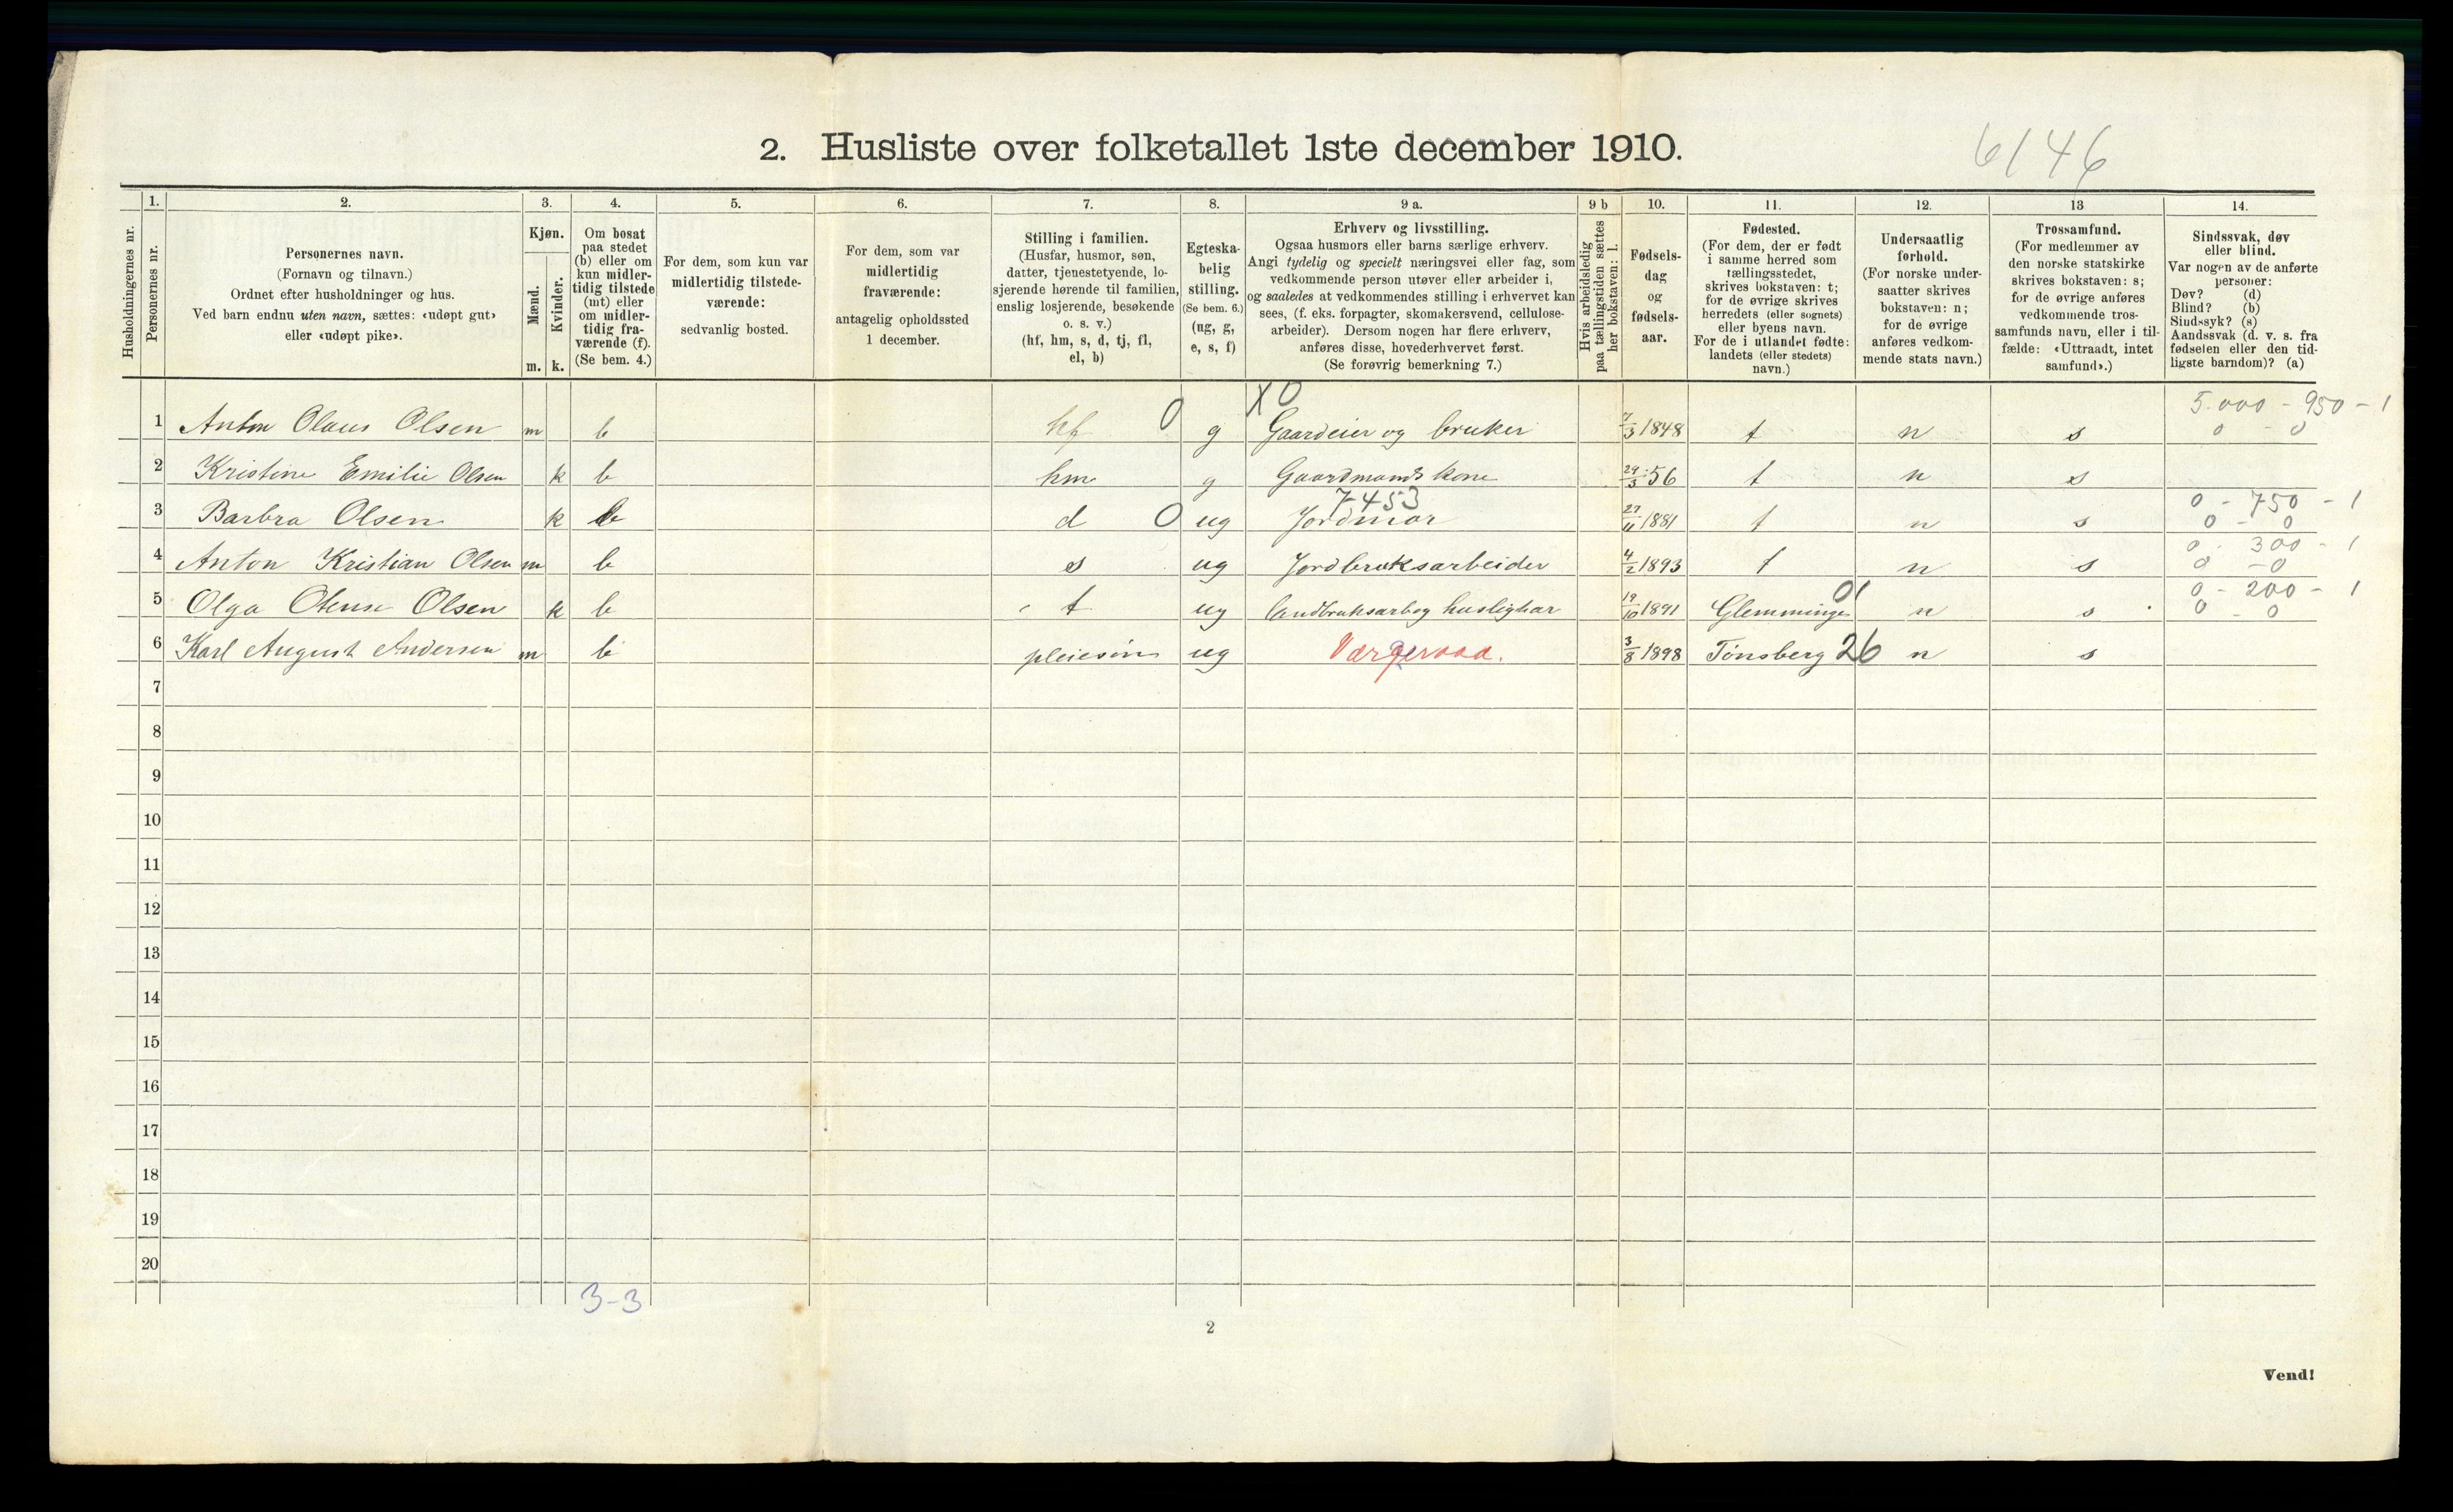 2. Husliste over folketallet 1ste december 1910.
6146
Husholdningernes nr.
1.
Personernes nr.
2.
Personernes navn.
(Fornavn og tilnavn.)
Ordnet efter husholdninger og hus.
Ved barn endnu uten navn, sættes: «udøpt gut»
eller «udøpt pike».
3.
Kjøn.
Mænd.
Kvinder.
m. k.
4.
Om bosat
paa stedet
(b) eller om
kun midler-
tidig tilstede
(mt) eller
om midler-
tidig fra-
værende (f).
(Se bem. 4.)
5.
For dem, som kun var
midlertidig tilstede-
værende:
sedvanlig bosted.
6.
For dem, som var
midlertidig
fraværende:
antagelig opholdssted
1 december.
7.
Stilling i familien.
(Husfar, husmor, søn,
datter, tjenestetyende, lo-
sjerende hørende til familien,
enslig losjerende, besøkende
o. s. v.)
(hf, hm, s, d, tj, fl,
el, b)
8.
Egteska-
belig
stilling.
(Se bem. 6.)
(ug, g,
e, s, f)
9 a.
Erhverv og livsstilling.
Ogsaa husmors eller barns særlige erhverv.
Angi tydelig og specielt næringsvei eller fag, som
vedkommende person utøver eller arbeider i,
og saaledes at vedkommendes stilling i erhvervet kan
sees, (f. eks. forpagter, skomakersvend, cellulose-
arbeider). Dersom nogen har flere erhverv,
anføres disse, hovederhvervet først.
(Se forøvrig bemerkning 7.)
9 b
Hvis arbeidsledig
paa tællingstiden sættes
her bokstaven: l.
10.
Fødsels-
dag
og
fødsels-
aar.
11.
Fødested.
(For dem, der er født
i samme herred som
tællingsstedet,
skrives bokstaven: t;
for de øvrige skrives
herredets (eller sognets)
eller byens navn.
For de i utlandet fødte:
landets (eller stedets)
navn.)
12.
Undersaatlig
forhold.
(For norske under-
saatter skrives
bokstaven: n;
for de øvrige
anføres vedkom-
mende stats navn.)
13
Trossamfund.
(For medlemmer av
den norske statskirke
skrives bokstaven: s;
for de øvrige anføres
vedkommende tros-
samfunds navn, eller i til-
fælde: «Uttraadt, intet
samfund».)
14.
Sindssvak, døv
eller blind.
Var nogen av de anførte
personer:
Døv? (d)
Blind? (b)
Sindssyk? (s)
Aandssvak (d. v. s. fra
fødselen eller den tid-
ligste barndom)? (a)
X 0 5.000 - 950 - 1
1 Anton Olaus Olsen m b hf 0 g Gaardeier og bruker 7/3 1848 t n s 0 - 0
2 Kristine Emilie Olsen k b hm g Gaardmands kone 29/3 56 t n s
7453 0 - 750 - 1
3 Barbra Olsen k b d 0 ug Jordmor 27/11 1881 t n s 0 - 0
0 - 300 - 1
4 Anton Kristian Olsen m b s ug Jordbruksarbeider 4/2 1893 t n s 0 - 0
01 0 - 200 - 1
5 Olga Otense Olsen k b t ug 19/10 1891 Glemminge n s 0 - 0
6 Karl August Andersen m b pleiesøn ug Værgeraad. 3/8 1898 Tønsberg 26 n s
7
8
9
10
11
12
13
14
15
16
17
18
19
20
3-3
2
Vend!